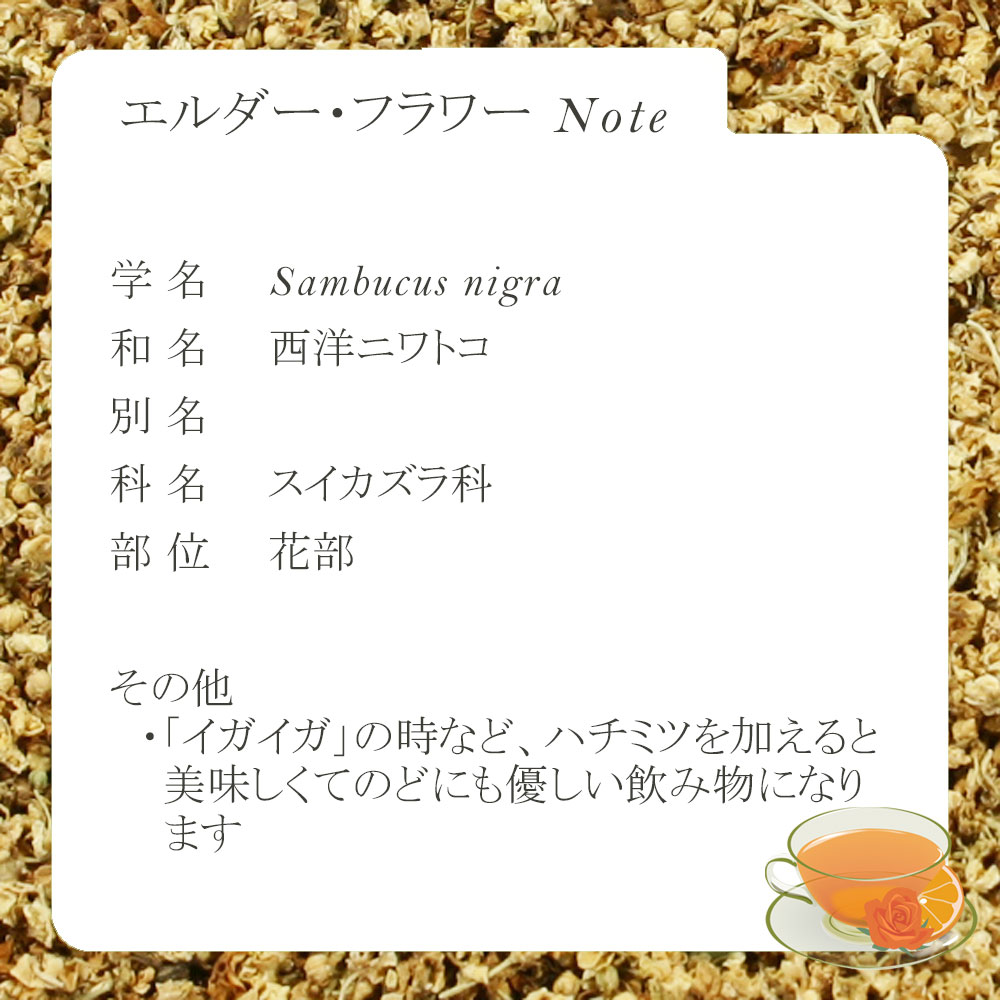 エルダー・フラワー Note
学名 Sambucus nigra
和名 西洋ニワトコ
別名
科名 スイカズラ科
部位 花部
その他
・「イガイガ」の時など、ハチミツを加えると
美味しくてのどにも優しい飲み物になり
ます